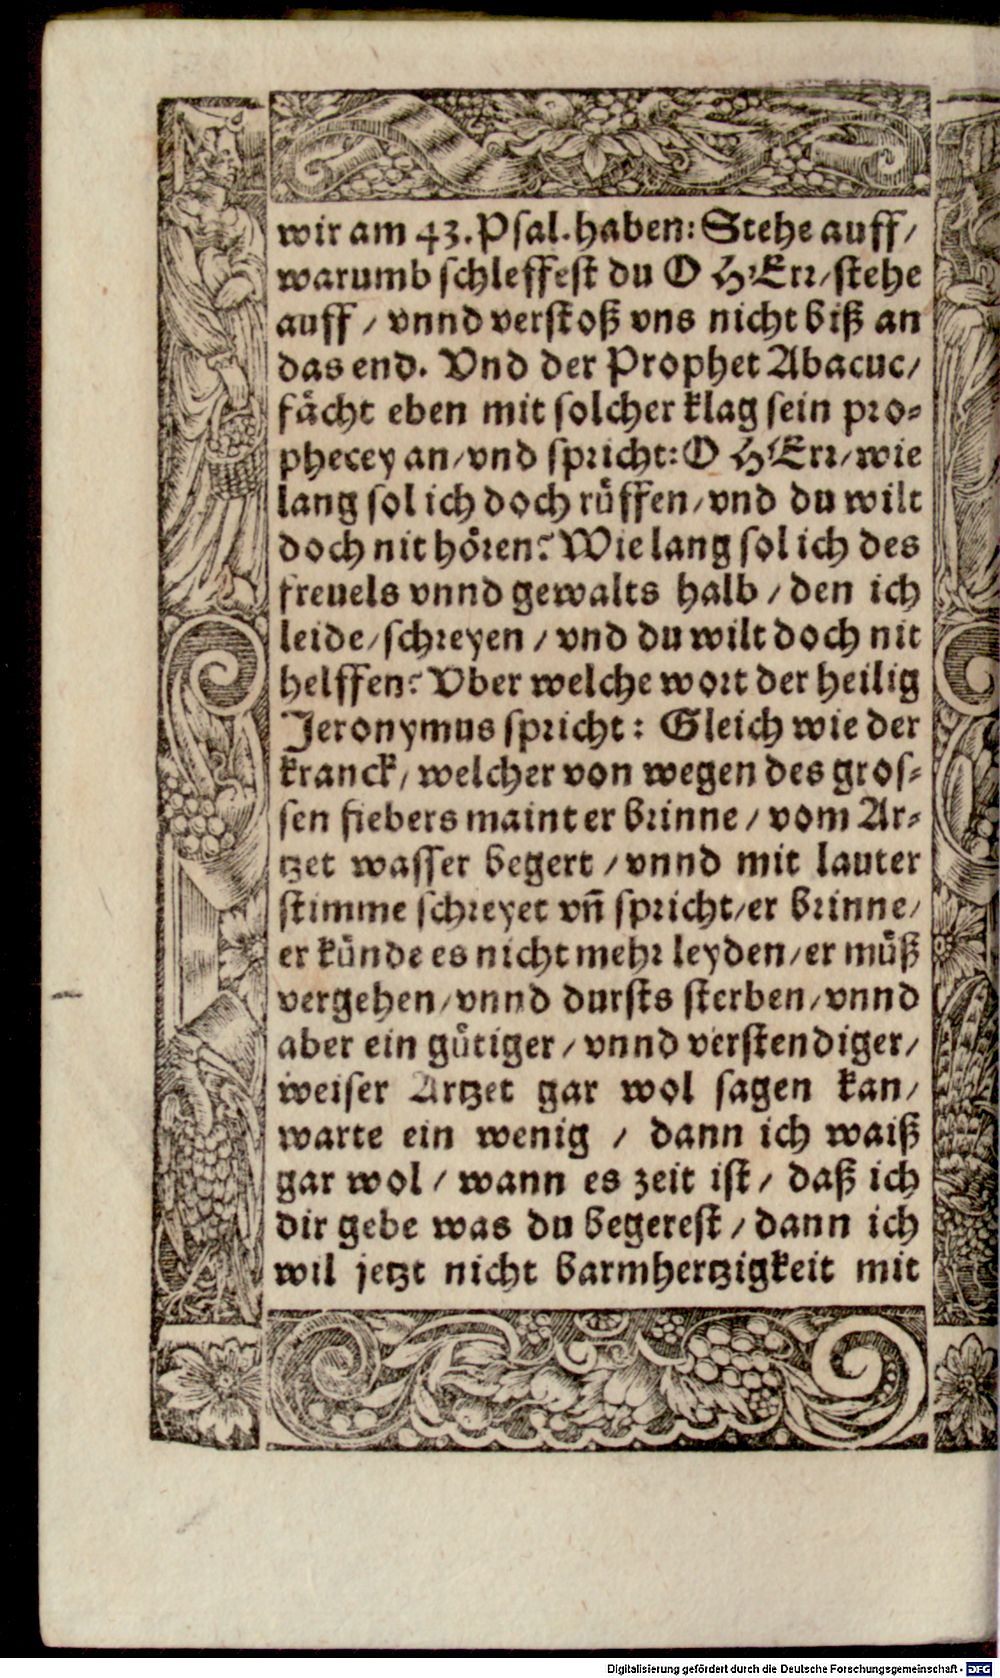 wir am 43. Psal. haben: Stehe auff/
warumb schleffest du O HErr/ stehe
auff / vnnd verstoß vns nicht biß an
das end. Vnd der Prophet Abacuc/
fächt eben mit solcher klag sein pro⸗
phecey an/ vnd spricht: O HErr/ wie
lang sol ich doch rüffen/ vnd du wilt
doch nit hören? Wie lang sol ich des
freuels vnnd gewalts halb / den ich
leide/ schreyen / vnd du wilt doch nit
helffen? Vber welche wort der heilig
Jeronymus spricht: Gleich wie der
kranck/ welcher von wegen des gros⸗
sen fiebers maint er brinne / vom Ar⸗
tzet wasser begert / vnnd mit lauter
stimme schreyet vn̄ spricht/ er brinne/
er künde es nicht mehr leyden/ er müß
vergehen/ vnnd dursts sterben/ vnnd
aber ein gütiger / vnnd verstendiger/
weiser Artzet gar wol sagen kan/
warte ein wenig / dann ich waiß
gar wol / wann es zeit ist / daß ich
dir gebe was du begerest / dann ich
wil jetzt nicht barmhertzigkeit mit
Digitalisierung gefördert durch die Deutsche Forschungsgemeinschaft - DFG